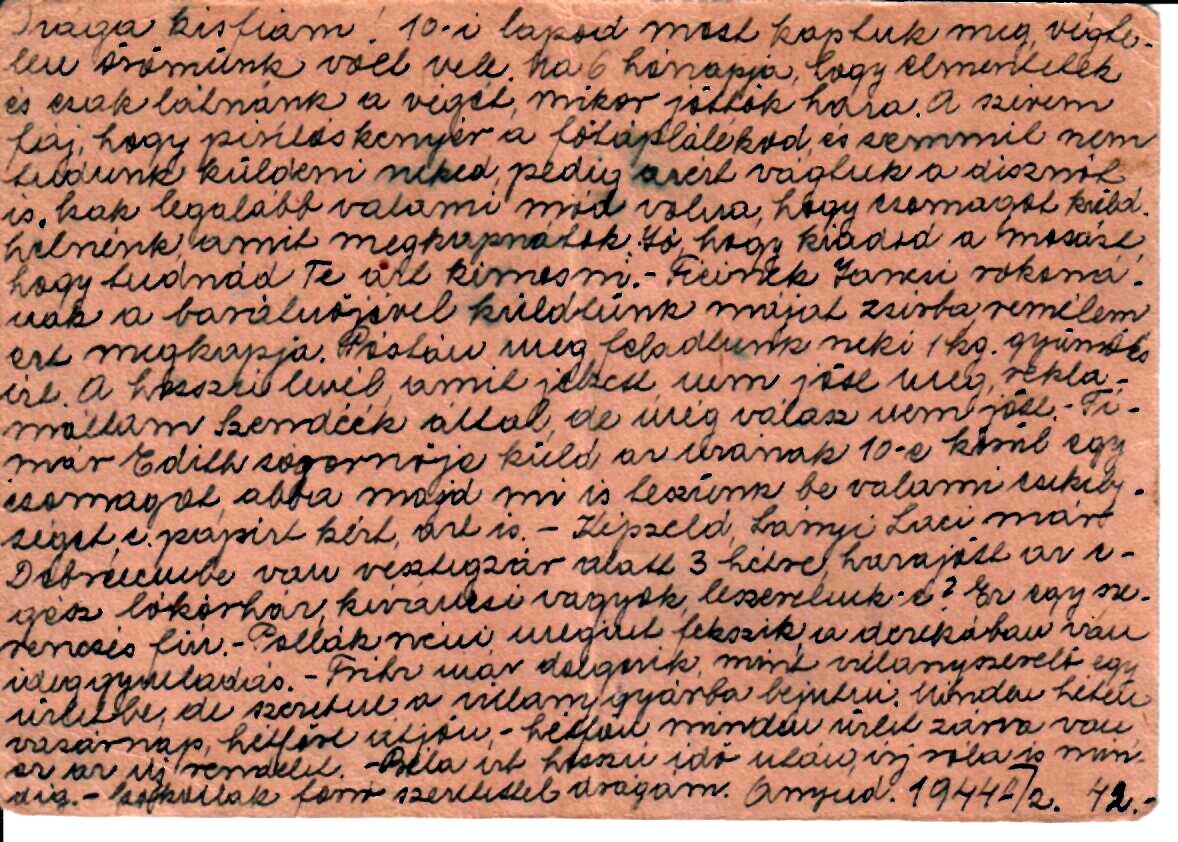 Drága kisfiam! 10-i lapod most kaptuk meg, végte-
len örömünk volt vele. Ma 6 hónapja, hogy elmentetek
és csak látnánk a végét, mikor jöttök haza. A szivem
fáj, hogy piritóskenyér a főtáplálékod, és semmit nem
tudunk küldeni neked, pedig azért vágtuk a disznót
is. Csak legalább valami mód volna, hogy csomagot küld-
hetnénk, amit megkapnátok. Jó, hogy kiadod a mosást,
hogy tudnád Te azt kimosni. - Jancsi rokoná-
nak a barátnőjével küldtünk májat zsirba, remélem
ezt megkapja. Postán meg feladtunk neki 1 kg. gyümölcs
izt. A hosszú levél, amit jelzett nem jött meg, rekla-
máltam által, de még válasz nem jött. - Ti-
már Edith sógornője küld az urának 10-e körül egy
csomagot, abba majd mi is teszünk be valami csekély-
séget, c. papirt kért, azt is. - Képzeld, Lányi Laci már
Debrecenbe van vesztegzár alatt 3 hétre, hazajött az e-
gész lókórház, kiváncsi vagyok, leszerelnek-e? Ez egy sze-
rencsés fiu. - Pollák néni megint fekszik a derekában van
ideggyulladás. - Fritz már dolgozik, mint villanyszerelő egy
üzletbe, de szeretne a villamgyárba bejutni. Minden héten
vasárnap, hétfőn átjön, - hétfőn minden üzlet zárva van
ez az új rendelet. - Béla irt hosszú idő után, irj róla is min-
dig. - Csókollak forró szeretettel drágám. Anyud. 1944 /2. 42.-